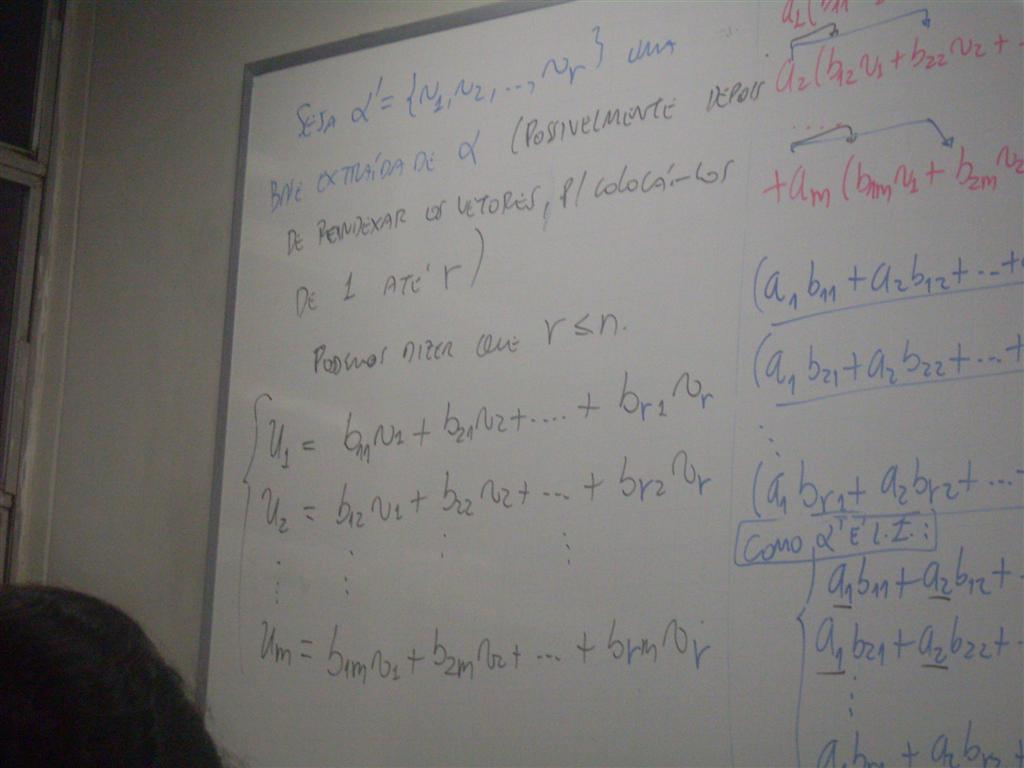 SEJA α' = {v1, v2, ..., vr} UMA
BASE EXTRAÍDA DE α (POSSIVELMENTE DEPOIS
DE REINDEXAR OS VETORES, P/ COLOCÁ-LOS
DE 1 ATÉ r)
PODEMOS DIZER QUE r ≤ n.
u1 = b11 v1 + b21 v2 + .... + br1 vr
u2 = b12 v1 + b22 v2 + ... + br2 vr
⋮ ⋮ ⋮ ⋮
um = b1m v1 + b2m v2 + ... + brm vr
a1(b11
a2(b12 v1 + b22 v2 +
......
+am(b1m v1 + b2m v2
(a1 b11 + a2 b12 + ... +
(a1 b21 + a2 b22 + ... +
⋮
(a1 br1 + a2 br2 + ...
COMO α' É L.I.:
a1 b11 + a2 b12 +
a1 b21 + a2 b22 +
⋮
a1 br1 + a2 br2